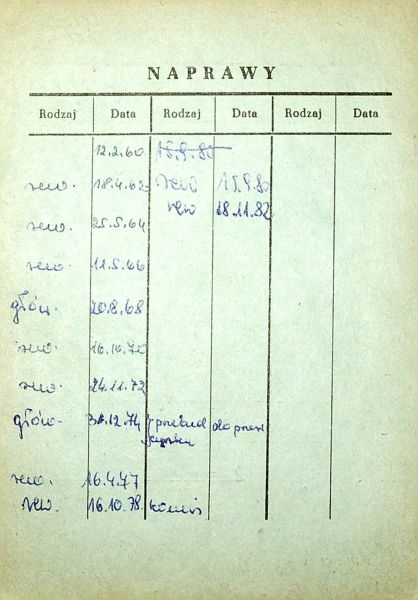 NAPRAWY
Rodzaj Data Rodzaj Data Rodzaj Data
12.2.60 15.9.80
rew. 18.4.62 rew 15.9.80
rew 18.11.82
rew. 25.5.64
rew. 11.5.66
głów. 20.8.68
rew. 16.10.70
rew. 24.11.72
głów. 31.12.74
rew. 16.4.77
rew. 16.10.78.